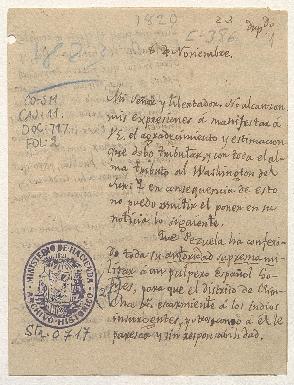 1820
23 dup.do
8 de Noviembre.
CO-SM
CAJ: 11.
DOC: 717
FOL: 2
Mi Señor y Libertador. No alcanzan
mis expresiones a manifestar á
V.E. el agradecimiento y estimacion
que debo tributar, y con toda el al-
ma tributo al Washington del
en consecuencia de esto
no puedo omitir el poner en su
noticia lo siguiente.
Que Pezuela ha conferi-
do toda su autoridad suprema mi-
litar á un pulpero Español Go-
para que el distrito de Chin-
cha de escarmiento á los Indios
insurgentes, y
paresca y sin responsabilidad.
MINISTERIO DE HACIENDA
ARCHIVO HISTORICO
Sta 0717